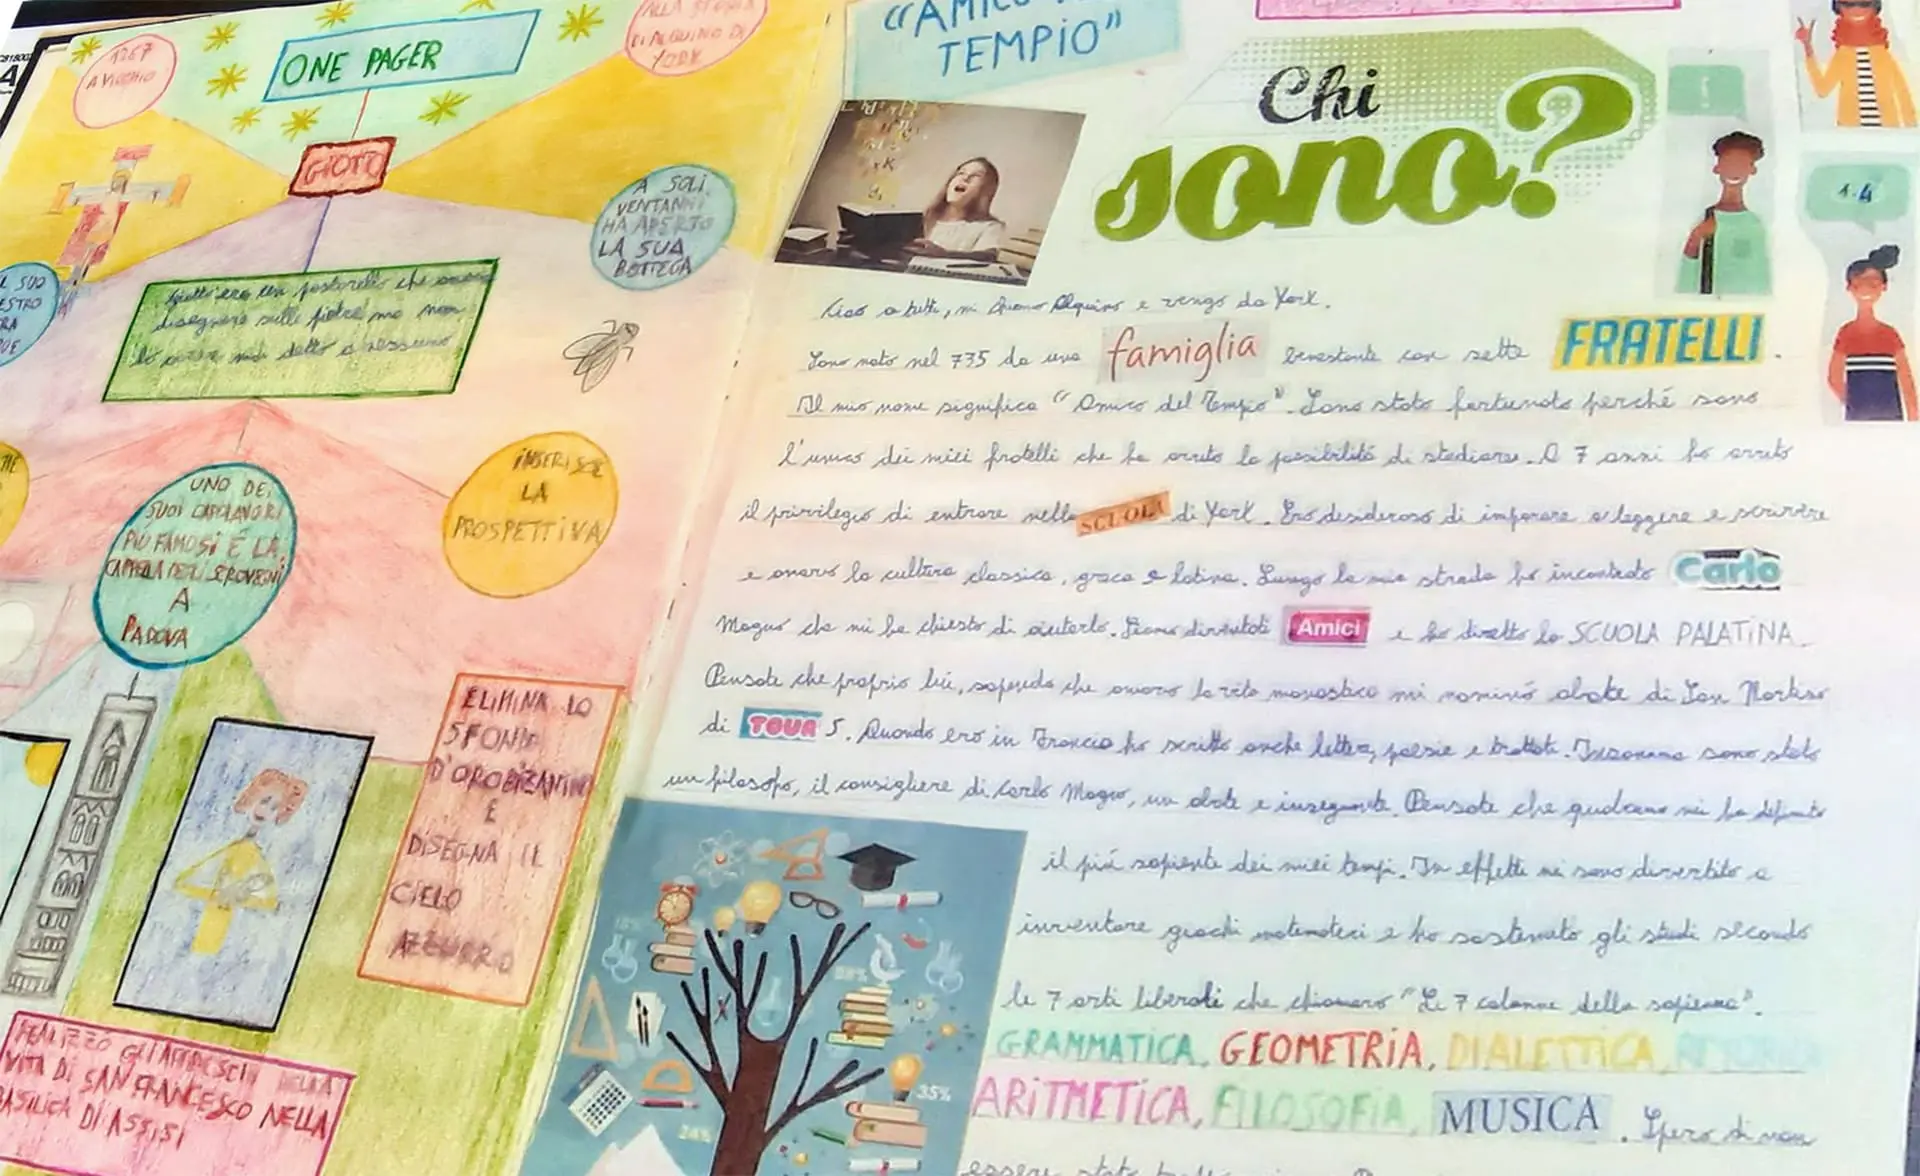 1267
A VICCHIO
ONE PAGER
ALLA STORIA
DI ALQUINO DI
YORK
GIOTTO
A SOLI
VENT'ANNI
HA APERTO
LA SUA
BOTTEGA
IL SUO
Giotto era un pastorello che amava
disegnare sulle pietre ma non
lo aveva mai detto a nessuno
UNO DEI
SUOI CAPOLAVORI
PIÙ FAMOSI È LA
CAPPELLA DEGLI SCROVEGNI
A
PADOVA
INSERISCE
LA
PROSPETTIVA
ELIMINA LO
SFONDO
D'ORO BIZANTINO
E
DISEGNA IL
CIELO
AZZURRO
REALIZZÒ GLI AFFRESCHI DELLA
VITA DI SAN FRANCESCO NELLA
BASILICA DI ASSISI
"AMICO
TEMPIO"
Chi
sono?
!
1.4
Ciao a tutti, mi chiamo Alquino e vengo da York.
Sono nato nel 735 da una famiglia benestante con sette FRATELLI.
Il mio nome significa "Amico del Tempio". Sono stato fortunato perché sono
l'unico dei miei fratelli che ha avuto la possibilità di studiare. A 7 anni ho avuto
il privilegio di entrare nella SCUOLA di York. Ero desideroso di imparare a leggere e scrivere
e amavo la cultura classica, greca e latina. Lungo la mia strada ho incontrato Carlo
Magno che mi ha chiesto di aiutarlo. Siamo diventati Amici e ho diretto la SCUOLA PALATINA.
Pensate che proprio lui, sapendo che amavo la vita monastica mi nominò abate di San Martino
di TOUR S. Quando ero in Francia ho scritto anche lettere, poesie e trattati. Insomma sono stato
un filosofo, il consigliere di Carlo Magno, un abate e insegnante. Pensate che qualcuno mi ha definito
il più sapiente dei miei tempi. In effetti mi sono divertito a
inventare giochi matematici e ho sostenuto gli studi secondo
le 7 arti liberali che chiamavo "Le 7 colonne della sapienza".
GRAMMATICA, GEOMETRIA, DIALETTICA,
ARITMETICA, FILOSOFIA, MUSICA. Spero di non
essere stato
35%
24%